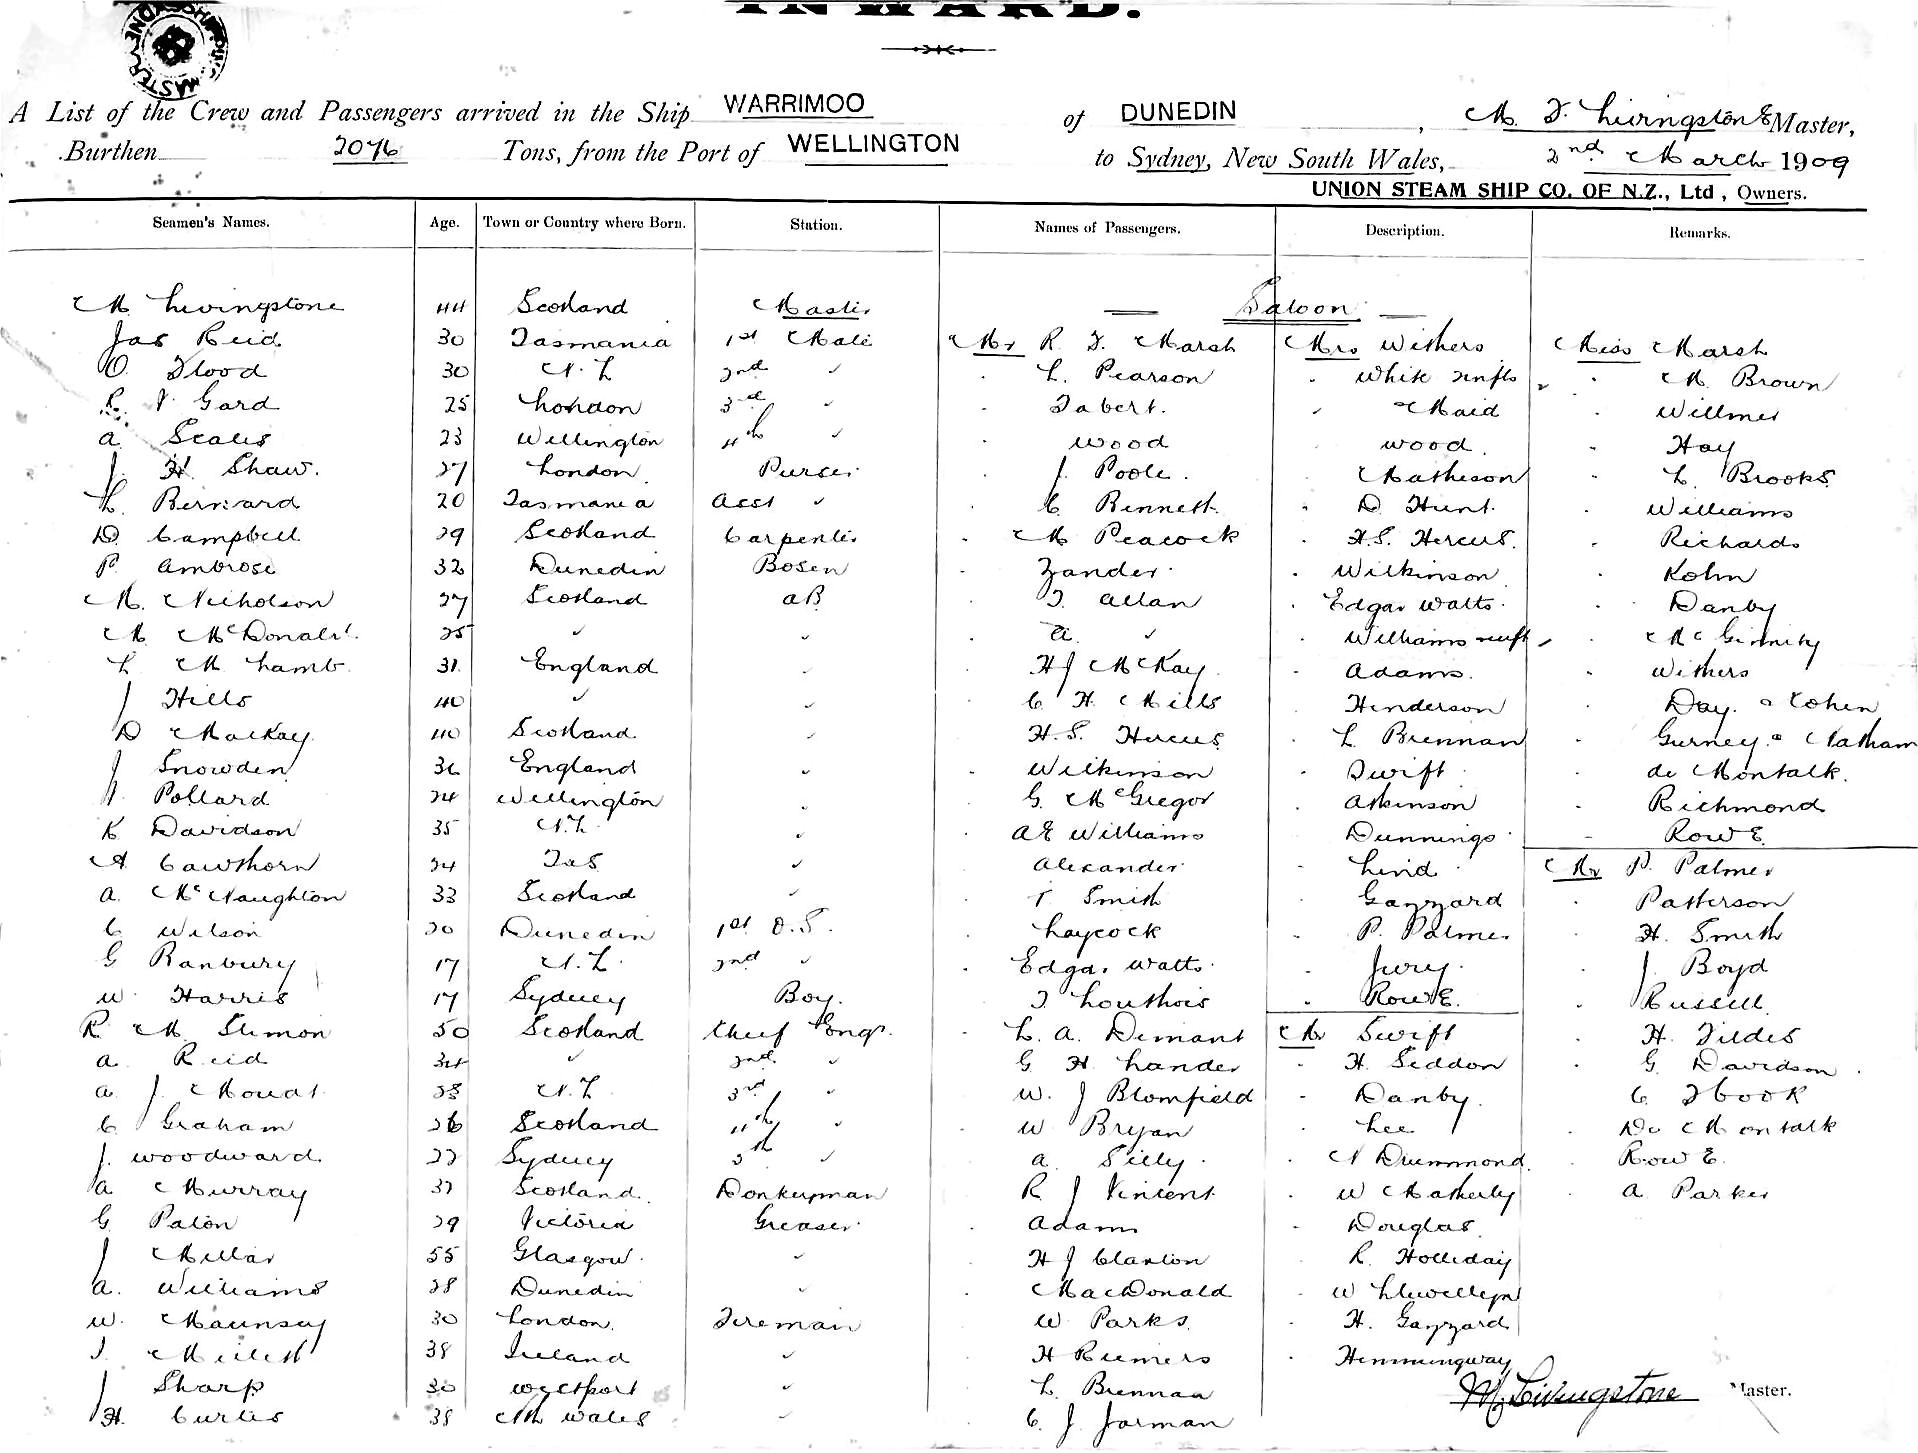 INWARD.
A List of the Crew and Passengers arrived in the Ship WARRIMOO of DUNEDIN, M. Livingstone Master,
Burthen 2076 Tons, from the Port of WELLINGTON to Sydney, New South Wales, 2nd March 1909
UNION STEAM SHIP CO. OF N.Z., Ltd, Owners.
Seamen's Names. Age. Town or Country where Born. Station. Names of Passengers. Description. Remarks.
M Livingstone 44 Scotland Master — Saloon —
Jas Reid 30 Tasmania 1st Mate Mr R. F. Marsh Mrs Withers Miss Marsh
O. Flood 30 N.Z 2nd " L. Pearson White & infts M. Brown
Gard 25 London 3rd " Tabert. Maid Willmer
A Scales 23 Wellington 4th " Wood Wood Hay
J. H. Shaw. 27 London Purser J Poole. Matheson L. Brooks
L. Bernard 20 Tasmania Asst " C Bennett D Hunt Williams
D Campbell 29 Scotland Carpenter M Peacock H.S. Hercus. Richards
P. Ambrose 32 Dunedin Bosen Zander Wilkinson Kohn
M. Nicholson 27 Scotland AB T. Allan Edgar Watts Danby
M McDonald. 25 " " A. " Williams & inft McGinnity
L M Lamb. 31 England " H J McKay Adams. Withers
J Hills 40 " " C H. Mills Henderson Day. Cohen
D MacKay 40 Scotland " H.S. Hercus L Brennan Gurney. Natham
J Snowden 36 England " Wilkinson Swift de Montalk.
Pollard 24 Wellington " G. McGregor Atkinson Richmond
K Davidson 35 N.Z. " A E Williams Dunnings Rowe
A Cawthorn 24 Tas " Alexander Lind Mr P. Palmer
A. McNaughton 33 Scotland " T Smith Gazzard Patterson
C Wilson 20 Dunedin 1st O.S. Laycock P. Palmer H. Smith
G Ranbury 17 N.Z 2nd " Edgar Watts. Jury. J. Boyd
W. Harris 17 Sydney Boy. Rowe. Russell
R M Slimon 50 Scotland Chief Engr. L. A. Demant Mr Swift H. Tildes
A. Reid 34 " 2nd " G H Lander H. Seddon G. Davidson
A. J. Mouat 28 N.Z 3rd " W. J Blomfield Danby. C
C Graham 26 Scotland 4th " W Bryan Lee De Montalk
J. Woodward 22 Sydney 5th " A. Silly N Drummond Rowe.
A Murray 37 Scotland. Donkeyman R J Vincent W Matherly A Parker
G Paton 29 Victoria Greaser Adams Douglas
J Millar 55 Glasgow " H J Clarton R. Holliday
A. Williams 28 Dunedin " MacDonald W Llwellyn
W. Maunsey 30 London Fireman W Parks. H. Gazzard
38 Ireland " H Riemers Hemmingway
J Sharp 30 Westport " L. Brennan M. Livingstone Master.
H. Curtis 38 Nth Wales " C. J. Jarman